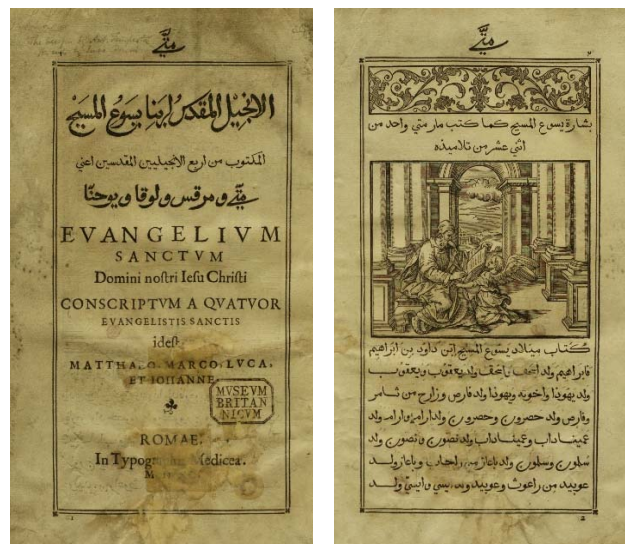 متّى
الانجيل المقدس لربنا يسوع المسيح
المكتوب من اربع الانجيليين المقدسين اعني
متّى ومرقس ولوقا ويوحنّا
EVANGELIVM
SANCTVM
Domini nostri Iesu Christi
CONSCRIPTVM A QVATVOR
EVANGELISTIS SANCTIS
idest,
MATTHAEO, MARCO, LVCA,
ET IOHANNE.
MVSEVM
BRITAN
NICVM
ROMAE,
In Typographia Medicea.
متّى
٢
بشارة يسوع المسيح كما كتب مار متي واحد من
اثني عشر من تلاميذه
كتاب ميلاد يسوع المسيح ابن داود بن ابراهيم
فابراهيم ولد اسحق واسحق ولد يعقوب ويعقوب
ولد يهوذا واخوته ويهوذا ولد فارص وزارح من ثامر
وفارص ولد حصرون وحصرون ولد ارام وارام ولد
عميناداب وعميناداب ولد نصون ونصون ولد
سلمون وسلمون ولد باعاز من راحاب وباعاز ولد
عوبيد من راعوث وعوبيد ولد يسي وايسي ولد
2